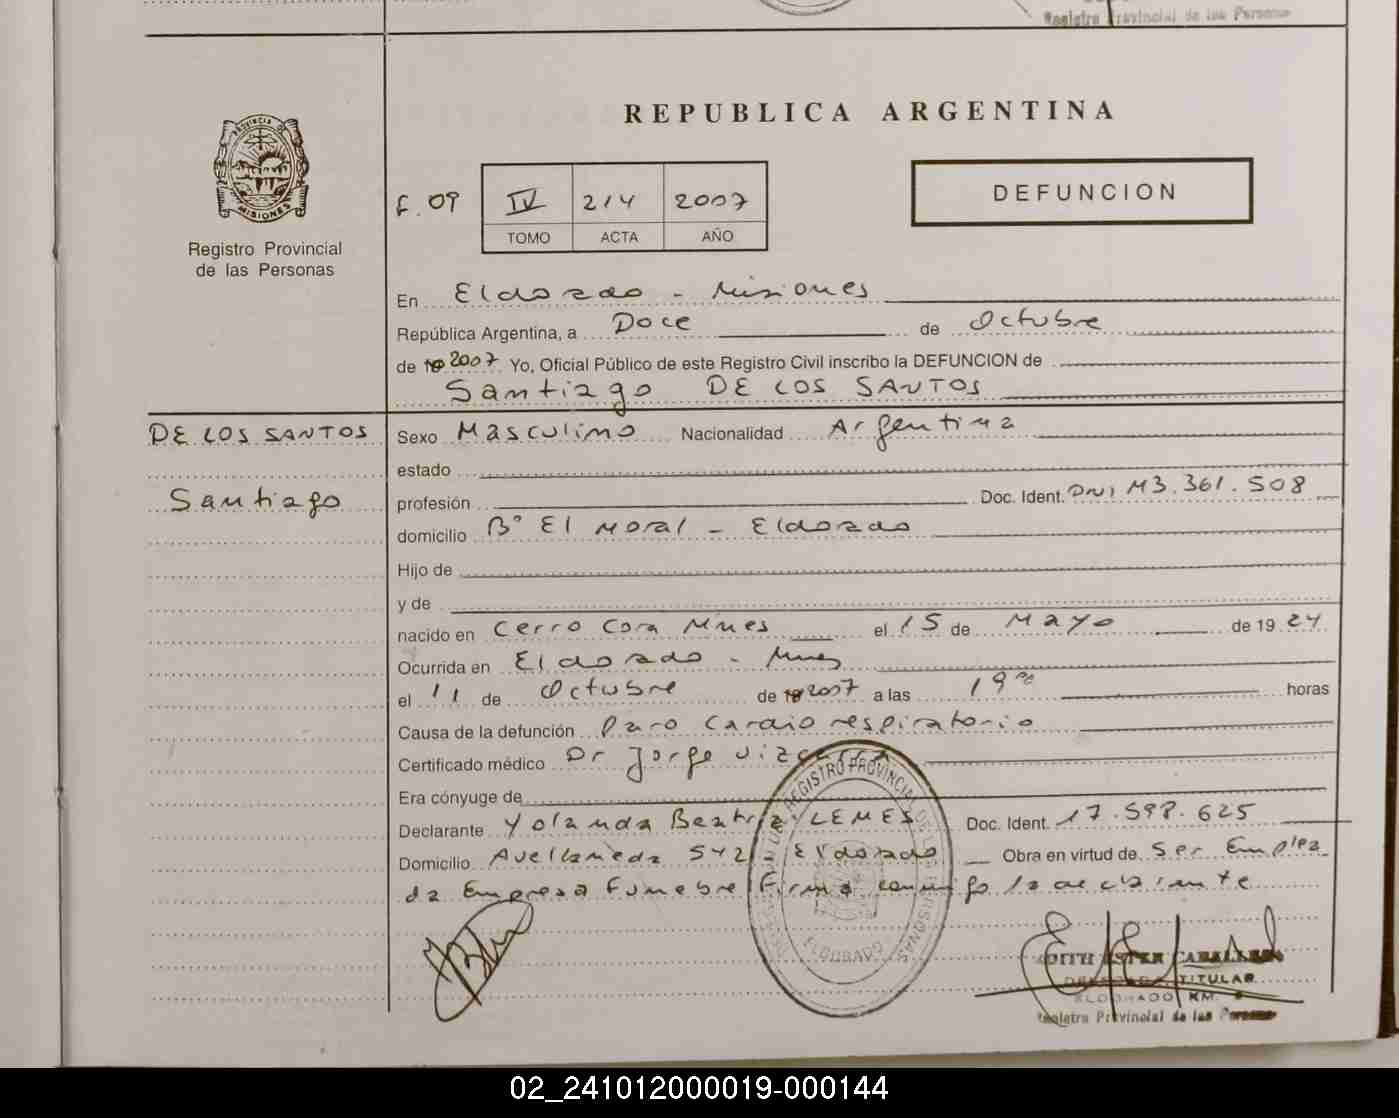 Registro Provincial de las Personas
PROVINCIA DE
MISIONES
Registro Provincial
de las Personas
REPUBLICA ARGENTINA
F. 09
IV 214 2007
TOMO ACTA AÑO
DEFUNCION
En Eldorado - Misiones
República Argentina, a Doce de Octubre
de 2007 Yo, Oficial Público de este Registro Civil inscribo la DEFUNCION de
Santiago DE LOS SANTOS
DE LOS SANTOS
Santiago
Sexo Masculino Nacionalidad Argentina
estado
profesión Doc. Ident. DNI M3.361.508
domicilio Bº El Moral - Eldorado
Hijo de
y de
nacido en Cerro Cora Mnes el 15 de Mayo de 19 24
Ocurrida en Eldorado - Mnes
el 11 de Octubre de 2007 a las 19 00 horas
Causa de la defunción Paro Cardiorespiratorio
Certificado médico Dr Jorge
Era cónyuge de
Declarante Yolanda Beatriz LEMES Doc. Ident. 17.598.625
Domicilio Avellaneda 542 - Eldorado Obra en virtud de Ser Emplea
da Empresa Funebre Firma conmigo la declarante
REGISTRO PROVINCIAL DE LAS PERSONAS
ELDORADO
EDITH ESTER CABALLERO
TITULAR
ELDORADO KM.
Registro Provincial de las Personas
02_241012000019-000144